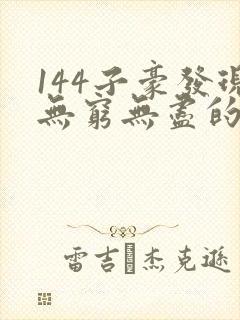 144子豪發現
無窮無盡的
雷吉·杰克遜